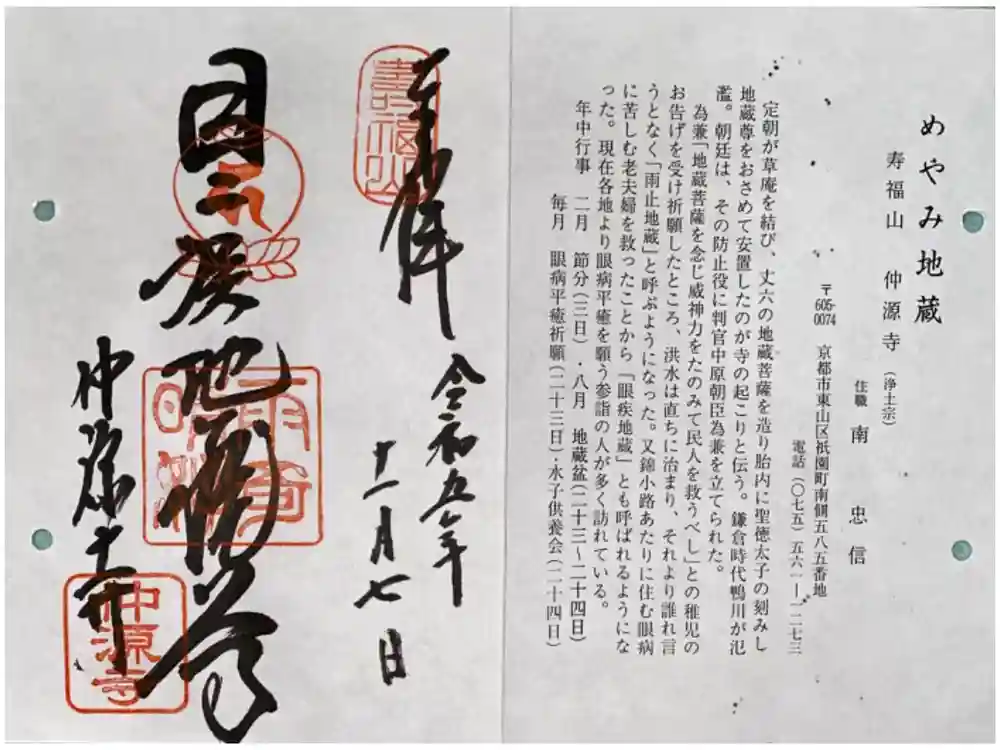 めやみ地蔵
寿福山 仲源寺 (浄土宗)
住職 南 忠信
〒605-0074 京都市東山区祇園町南側五八五番地
電話 (〇七五) 五六一―一二七三
定朝が草庵を結び、丈六の地蔵菩薩を造り胎内に聖徳太子の刻みし
地蔵尊をおさめて安置したのが寺の起こりと伝う。鎌倉時代鴨川が氾
濫。朝廷は、その防止役に判官中原朝臣為兼を立てられた。
為兼「地蔵菩薩を念じ威神力をたのみて民人を救うべし」との稚児の
お告げを受け祈願したところ、洪水は直ちに治まり、それより誰れ言
うとなく「雨止地蔵」と呼ぶようになった。又錦小路あたりに住む眼病
に苦しむ老夫婦を救ったことから「眼疾地蔵」とも呼ばれるようにな
った。現在各地より眼病平癒を願う参詣の人が多く訪れている。
年中行事 二月 節分(三日)・八月 地蔵盆(二十三〜二十四日)
毎月 眼病平癒祈願(二十三日)・水子供養会(二十四日)
奉拝
寿福山
令和五年
十一月七日
地蔵尊
雨奇晴
仲源寺
仲源寺